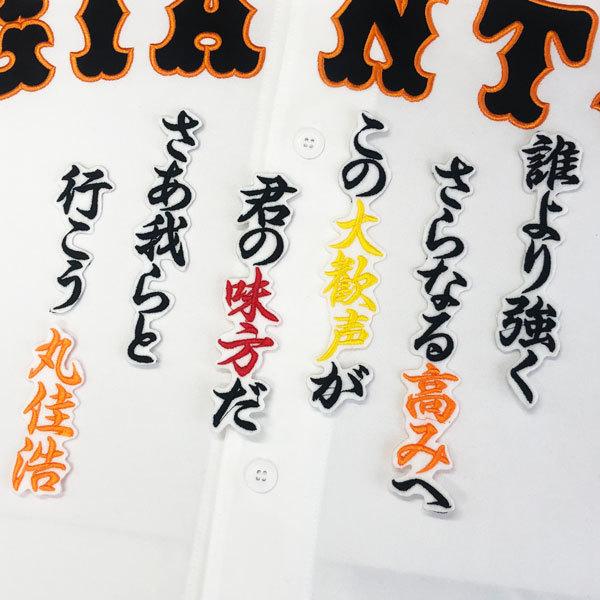 GIANT
誰より強く
さらなる高みへ
この大歓声が
君の味方だ
さあ我らと
行こう 丸佳浩